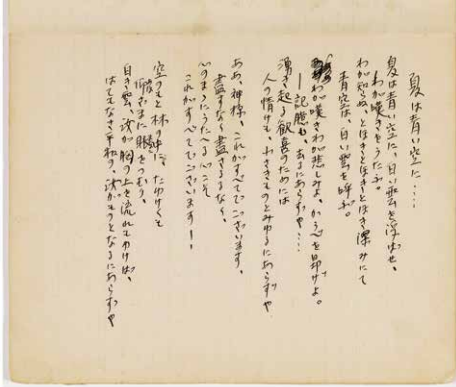 夏は青い空に‥‥
夏は青い空に、白い雲を浮ばせ、
わが嘆きをうたふ。
わが知らぬ、とほきとほきとほき深みにて
青空は、白い雲を呼ぶ。
わが嘆きわが悲しみよ、かうべを昂げよ。
―記憶も、去るにあらずや‥‥
湧き起る歓喜のためには
人の情けも、小さきものとみゆるにあらずや
ああ、神様、これがすべてでございます、
尽すなく尽さるるなく、
心のまゝにうたへる心こそ
これがすべてでございます!
空のもと林の中に、たゆけくも
仰ざまに眼をつむり、
白き雲、汝が胸の上を流れもゆけば、
はてもなき平和の、汝がものとなるにあらずや